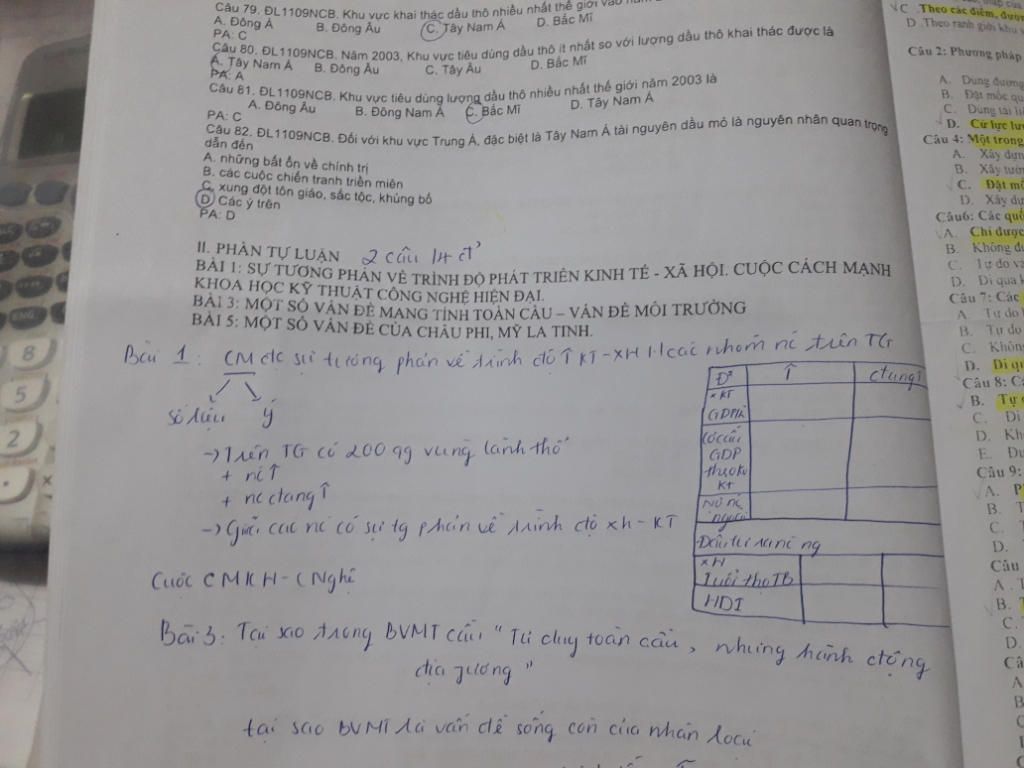 Câu 79. ĐL1109NCB. Khu vực khai thác dầu thô nhiều nhất thế giới vào năm
A. Đông Á B. Đông Âu C. Tây Nam Á D. Bắc Mĩ
PA: C
Câu 80. ĐL1109NCB. Năm 2003, Khu vực tiêu dùng dầu thô ít nhất so với lượng dầu thô khai thác được là
A. Tây Nam Á B. Đông Âu C. Tây Âu D. Bắc Mĩ
PA: A
Câu 81. ĐL1109NCB. Khu vực tiêu dùng lượng dầu thô nhiều nhất thế giới năm 2003 là
A. Đông Âu B. Đông Nam Á C. Bắc Mĩ D. Tây Nam Á
PA: C
Câu 82. ĐL1109NCB. Đối với khu vực Trung Á, đặc biệt là Tây Nam Á tài nguyên dầu mỏ là nguyên nhân quan trọng
dẫn đến
A. những bất ổn về chính trị
B. các cuộc chiến tranh triền miên
C. xung đột tôn giáo, sắc tộc, khủng bố
D. Các ý trên
PA: D
II. PHẦN TỰ LUẬN 2 câu 1+
BÀI 1: SỰ TƯƠNG PHẢN VỀ TRÌNH ĐỘ PHÁT TRIỂN KINH TẾ - XÃ HỘI. CUỘC CÁCH MẠNH
KHOA HỌC KỸ THUẬT CÔNG NGHỆ HIỆN ĐẠI.
BÀI 3: MỘT SỐ VẤN ĐỀ MANG TÍNH TOÀN CẦU – VẤN ĐỀ MÔI TRƯỜNG
BÀI 5: MỘT SỐ VẤN ĐỀ CỦA CHÂU PHI, MỸ LA TINH.
Bài 1: CM đc sự tương phản về trình độ ↑ KT-XH các nhóm nc trên TG
số liệu ý
→ Trên TG có 200 qg vùng lãnh thổ
+ nc ↑
+ nc đang ↑
→ Giữa các nc có sự tg phản về trình độ xh - KT
Cuộc CMKH - CNghệ
Bài 3: Tại sao trong BVMT cần "Tư duy toàn cầu, nhưng hành động
địa phương"
tại sao BVMT là vấn đề sống còn của nhân loại
↑ đang ↑
KT
GDP
Cơ cấu
GDP
theo kv
KT
Nợ nc
ngoài
Đầu tư ra nc ng
XH
Tuổi thọ TB
HDI
C. Theo các điểm, được
D. Theo ranh giới khu
Câu 2: Phương pháp
A. Dùng đường
B. Đặt mốc qu
C. Dùng tài li
D. Cử lực lư
Câu 4: Một trong
A. Xây dựn
B. Xây tườn
C. Đặt mố
D. Xây dự
Câu6: Các quố
A. Chỉ được
B. Không đư
C. Tự do và
D. Đi qua k
Câu 7: Các
A. Tự do
B. Tự do
C. Không
D. Đi qu
Câu 8: Cá
B. Tự
C. Đi
D. Kh
E. Dư
Câu 9:
A. P
B. T
C.
D.
Câu
A. T
B. T
C.
D.
Câ
A
B
C
8
5
2